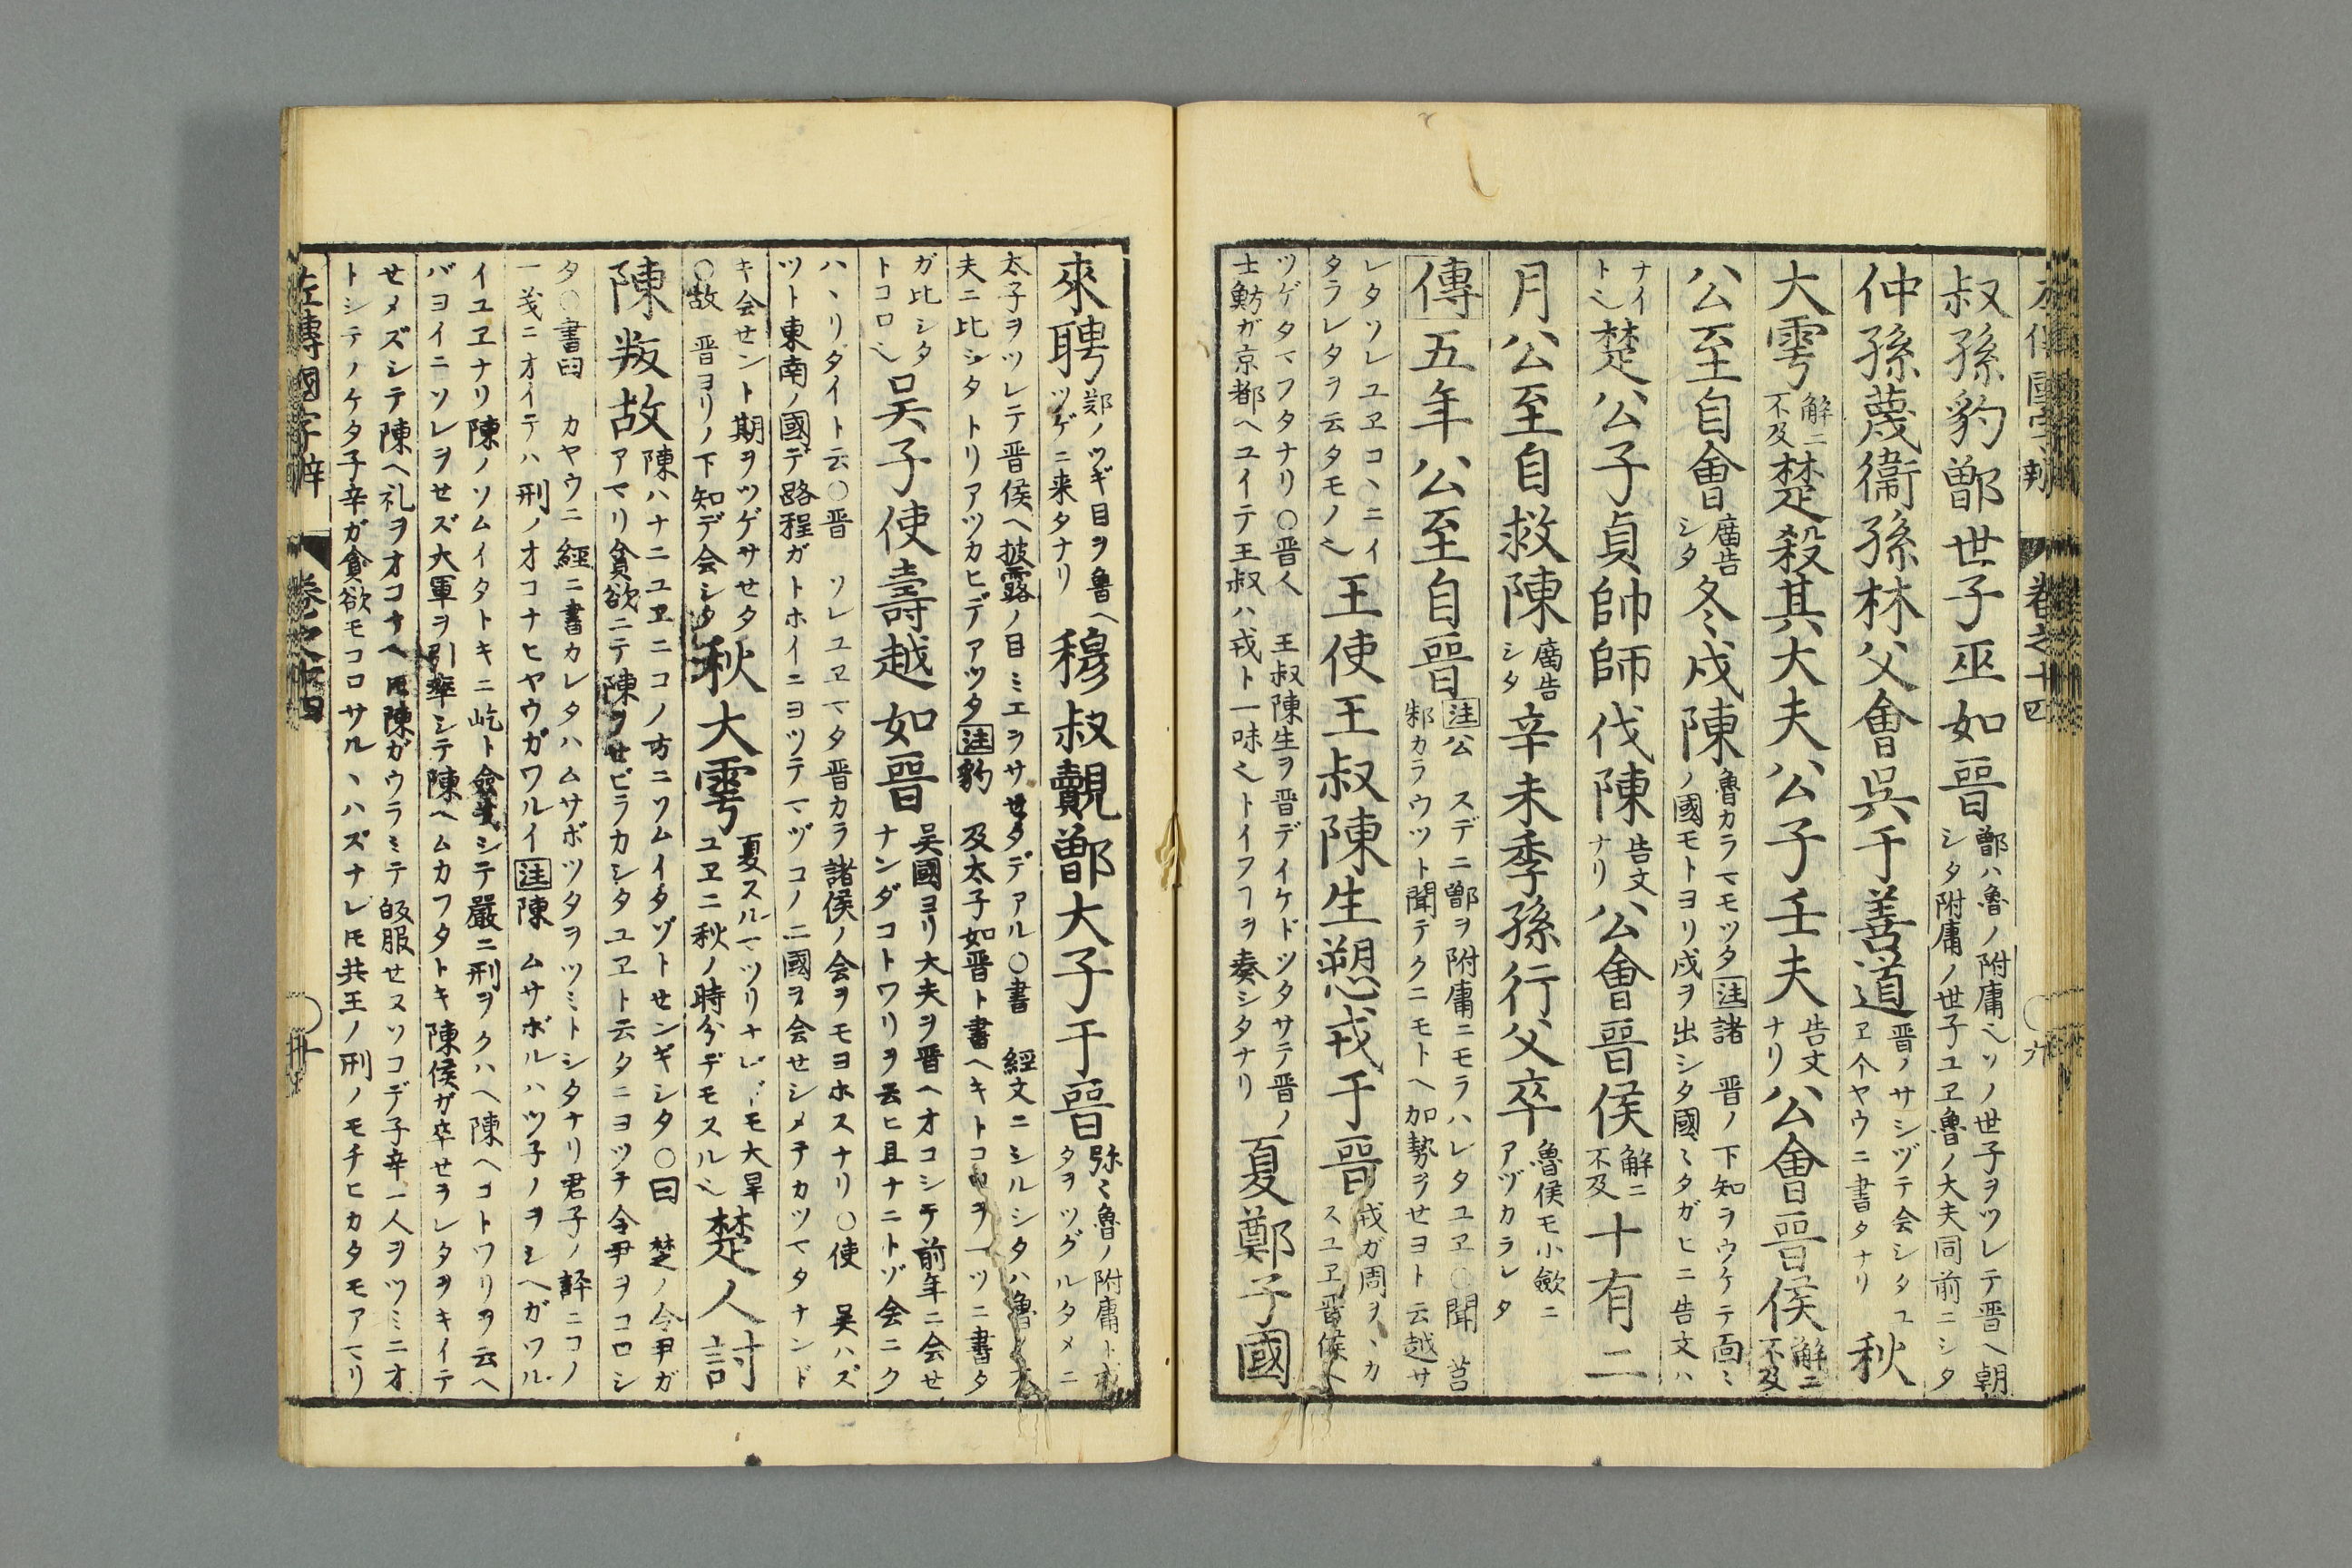 左傳國字辯 卷之十四 〇九
叔孫豹鄫世子巫如晉 鄫ハ魯ノ附庸ソノ世子ヲツレテ晋ヘ朝シタ附庸ノ世子ユヱ魯ノ大夫同前ニシタ
仲孫蔑衞孫林父會吳于善道 晋ノサシヅテ会シタユヱ今ヤウニ書タナリ 秋
大雩 解ニ不及 楚殺其大夫公子壬夫 告文ナリ 公會晉侯 解ニ不及
公至自會 廟告シタ 冬戍陳 魯カラマモツタ 注諸 晋ノ下知ヲウケテ面〻ノ國モトヨリ戍ヲ出シタ國〻タガヒニ告文ハ
ナイト 楚公子貞帥師伐陳 告文ナリ 公會晉侯 解ニ不及 十有二
月公至自救陳 廟告シタ 辛未季孫行父卒 魯侯モ小斂ニアヅカラレタ
傳 五年公至自晉 注公 スデニ鄫ヲ附庸ニモラハレタユヱ〇聞 莒邾カラウツト聞テクニモトヘ加勢ヲセヨト云越サ
レタソレユヱコヽニイタラレタヲ云タモノ 王使王叔陳生愬戎于晉 戎ガ周ヲヽカスユヱ晋侯ヘ
ツゲタマフタナリ〇晋人 王叔陳生ヲ晋デイケドツタサテ晋ノ士魴ガ京都ヘユイテ王叔ハ戎ト一味トイフヿヲ奏シタナリ 夏鄭子國
來聘 鄭ノツギ目ヲ魯ヘツゲニ来タナリ 穆叔覿鄫大子于晉 弥〻魯ノ附庸トタヲツグルタメニ
太子ヲツレテ晋侯ヘ披露ノ目ミエヲサセタデアル〇書 經文ニシルシタハ魯ノ大夫ニ比シタトリアツカヒデアツタ 注豹 及太子如晋ト書ヘキトコロヲ一ツニ書タ
ガ比シタトコロ 吳子使壽越如晉 吴國ヨリ大夫ヲ晋ヘオコシテ前年ニ会せナンダコトワリヲ云ヒ且ナニトゾ会ニク
ハヽリタイト云〇晋 ソレユヱマタ晋カラ諸侯ノ会ヲモヨホスナリ〇使 吴ハズツト東南ノ國デ路程ガトホイニヨツテマヅコノ二國ヲ会せシメテカツマタナンド
キ会せント期ヲツゲサせタ〇故 晋ヨリノ下知デ会シタ 秋大雩 夏スルマツリナレドモ大旱ユヱニ秋ノ時分デモスル 楚人討
陳叛故 陳ハナニユヱニコノ方ニソムイタゾトせンギシタ〇曰 楚ノ令尹ガアマリ貪欲ニテ陳ヲせビラカシタユヱト云タニヨツテ令尹ヲコロシ
タ〇書曰 カヤウニ經ニ書カレタハムサボツタヲツミトシタナリ君子ノ評ニコノ一義ニオイテハ刑ノオコナヒヤウガワルイ 注陳 ムサボルハツ子ノヲシヘガワル
イユヱナリ陳ノソムイタトキニ屹ト僉義シテ嚴ニ刑ヲクハヘ陳ヘコトワリヲ云ヘバヨイニソレヲせズ大軍ヲ引率シテ陳ヘムカフタトキ陳侯ガ卒せラレタヲキイテ
せメズシテ陳ヘ礼ヲオコナヘ𪜈陳ガウラミテ皈服せヌソコデ子辛一人ヲツミニオトシテノケタ子辛ガ貪欲モコロサルヽハズナレ𪜈共王ノ刑ノモチヒカタモアマリ
左傳國字辯 卷之十四 〇十